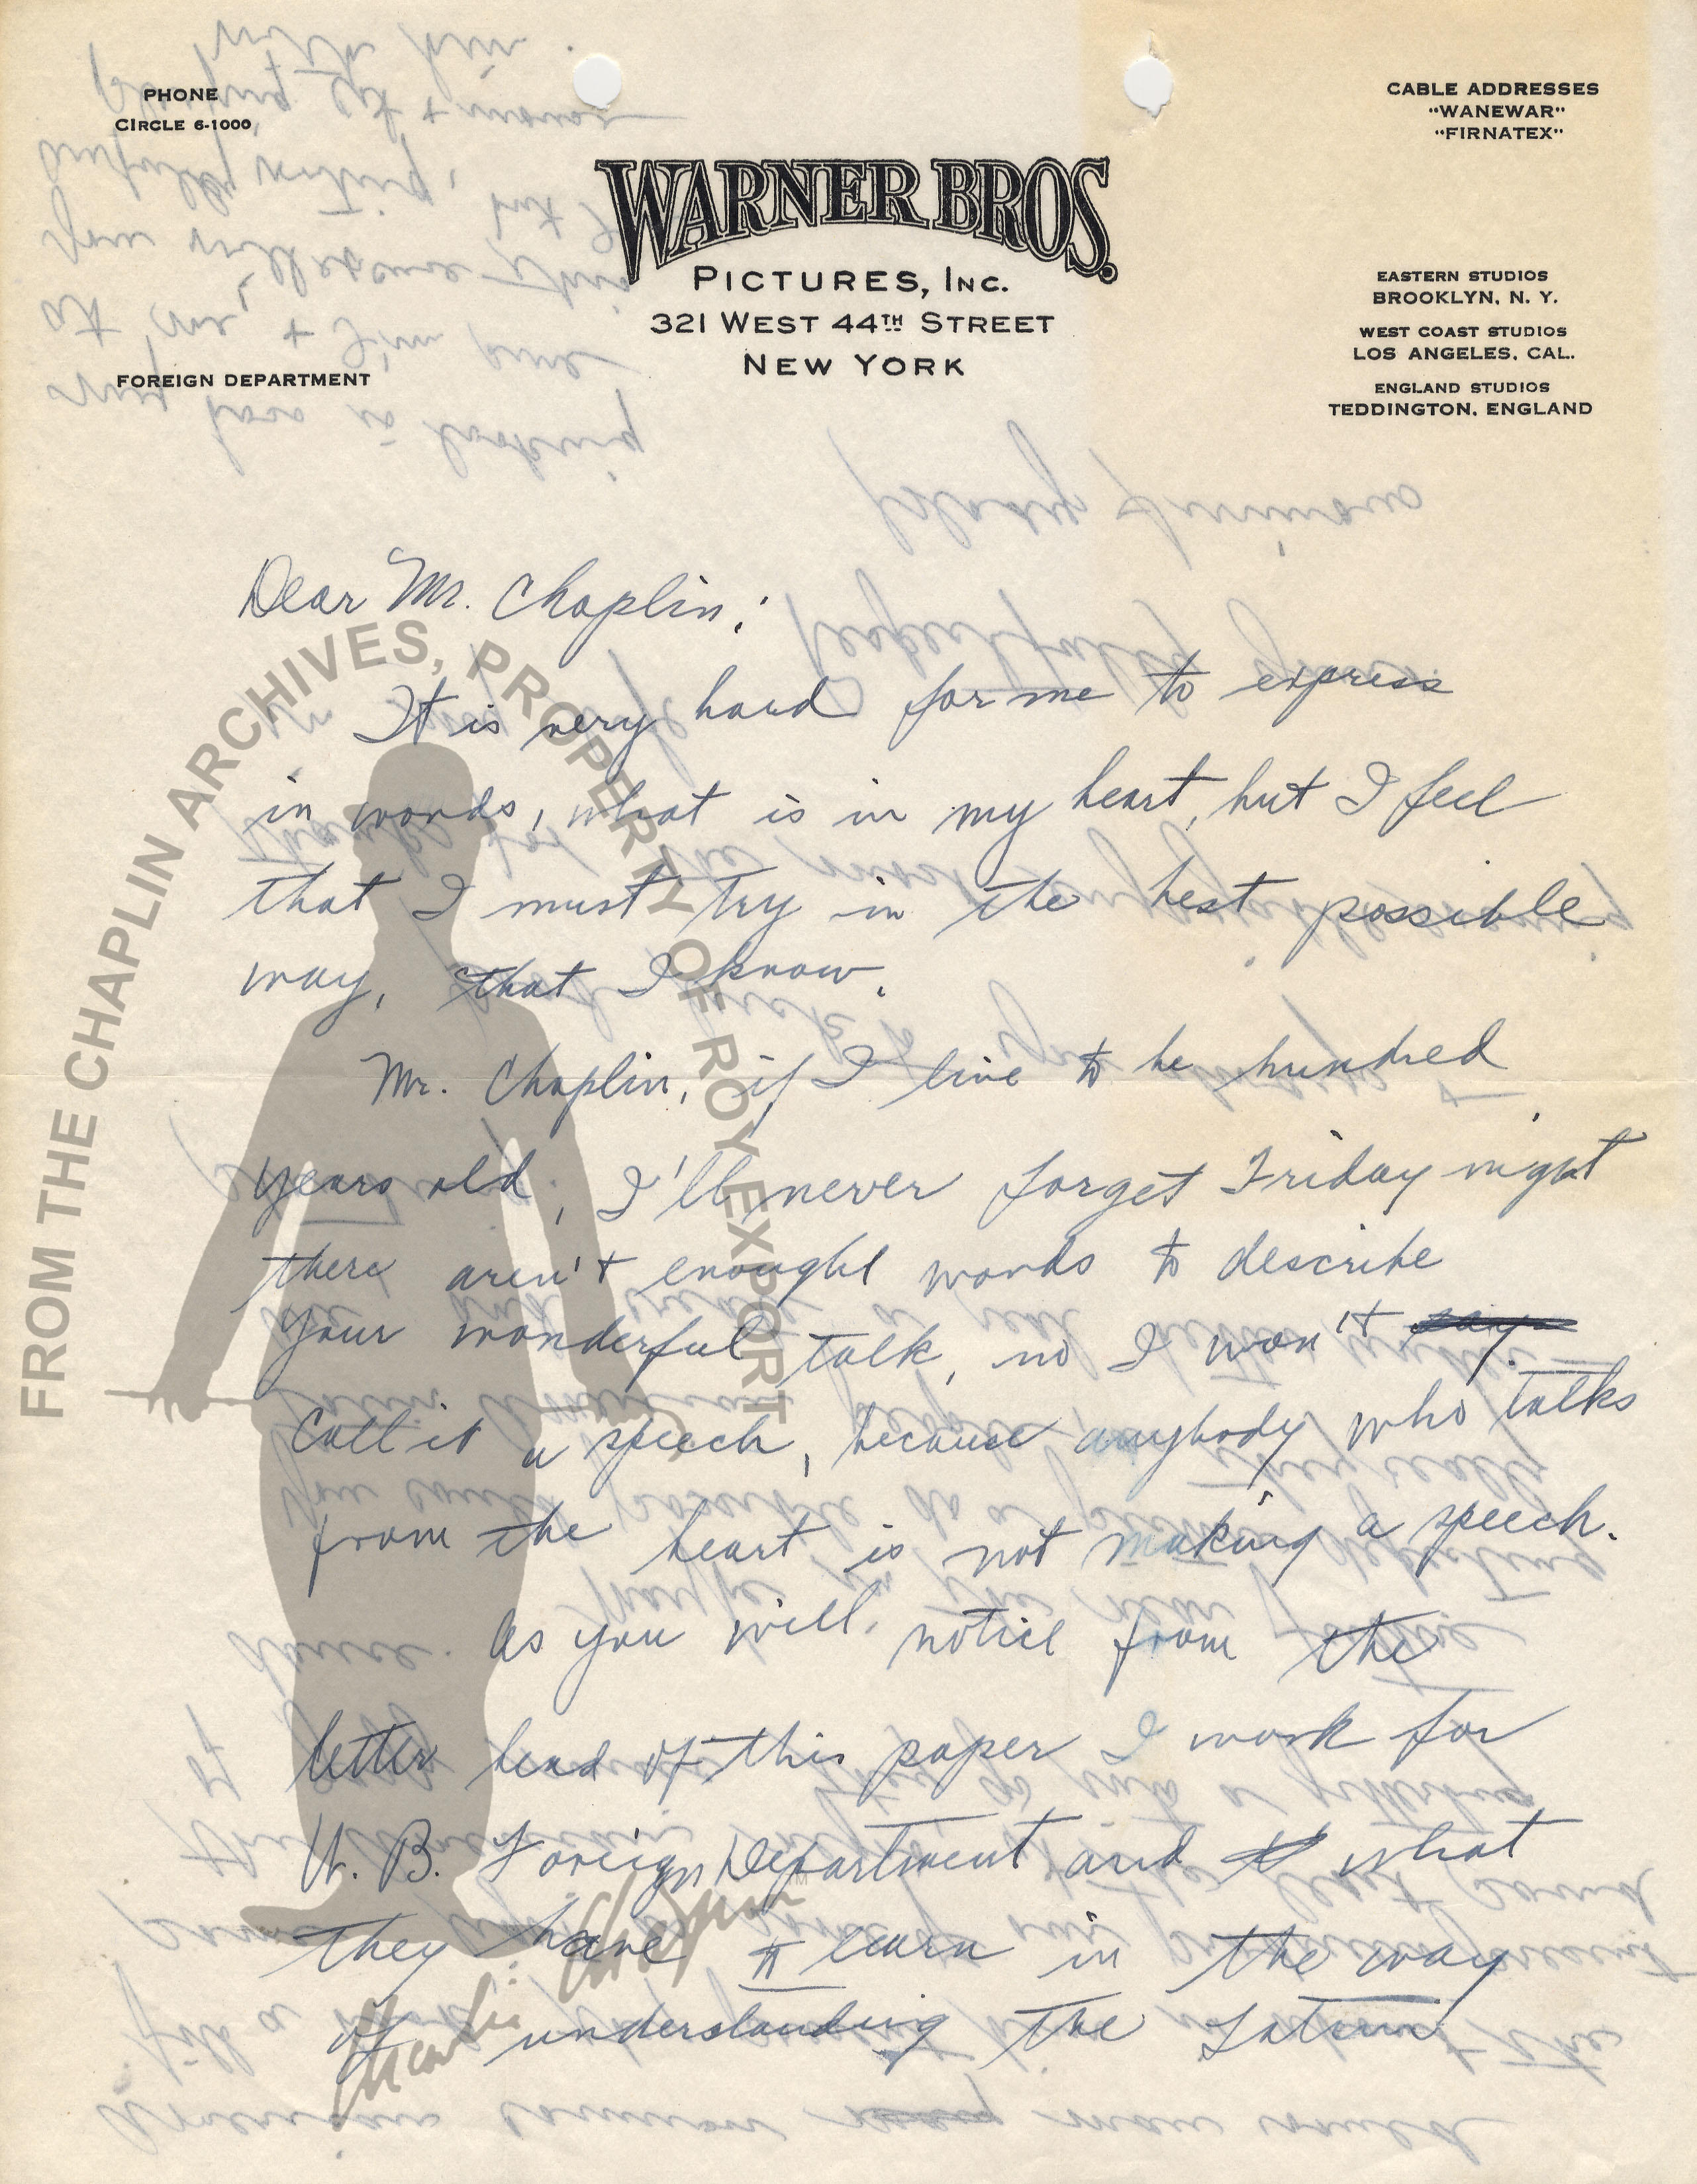 PHONE
CIRCLE 6-1000
CABLE ADDRESSES
"WANEWAR"
"FIRNATEX"
WARNER BROS.
PICTURES, INC.
321 WEST 44TH STREET
NEW YORK
EASTERN STUDIOS
BROOKLYN, N. Y.
WEST COAST STUDIOS
LOS ANGELES, CAL.
ENGLAND STUDIOS
TEDDINGTON, ENGLAND
FOREIGN DEPARTMENT
Dear Mr. Chaplin;
It is very hard for me to express
in words, what is in my heart, but I feel
that I must try in the best possible
way, that I know.
Mr. Chaplin, if I live to be hundred
years old, I'll never forget Friday night
there aren't enought words to describe
your wonderful talk, no I won't say
call it a speech, because anybody who talks
from the heart is not making a speech.
As you will notice from the
letter head of this paper I work for
W. B. Foreign Department and what
they have to learn in the way
of understanding the Latin
FROM THE CHAPLIN ARCHIVES, PROPERTY OF ROY EXPORT
Charlie Chaplin